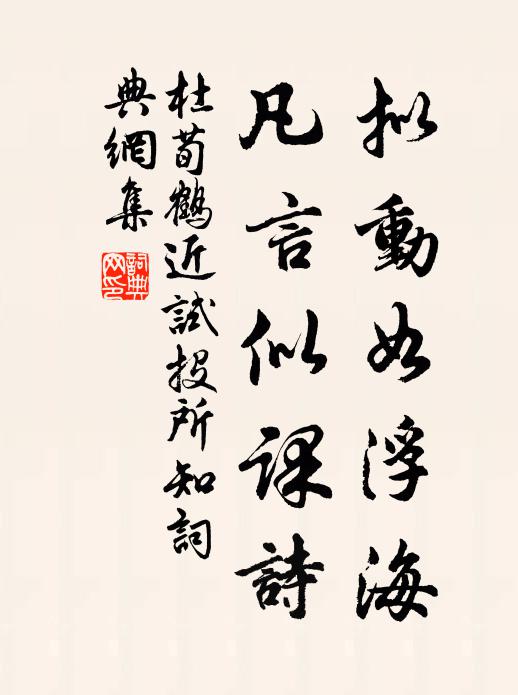 拟動如浮海
凡言似課詩
杜荀鶴近試投所知詞
典網集
詞典网印